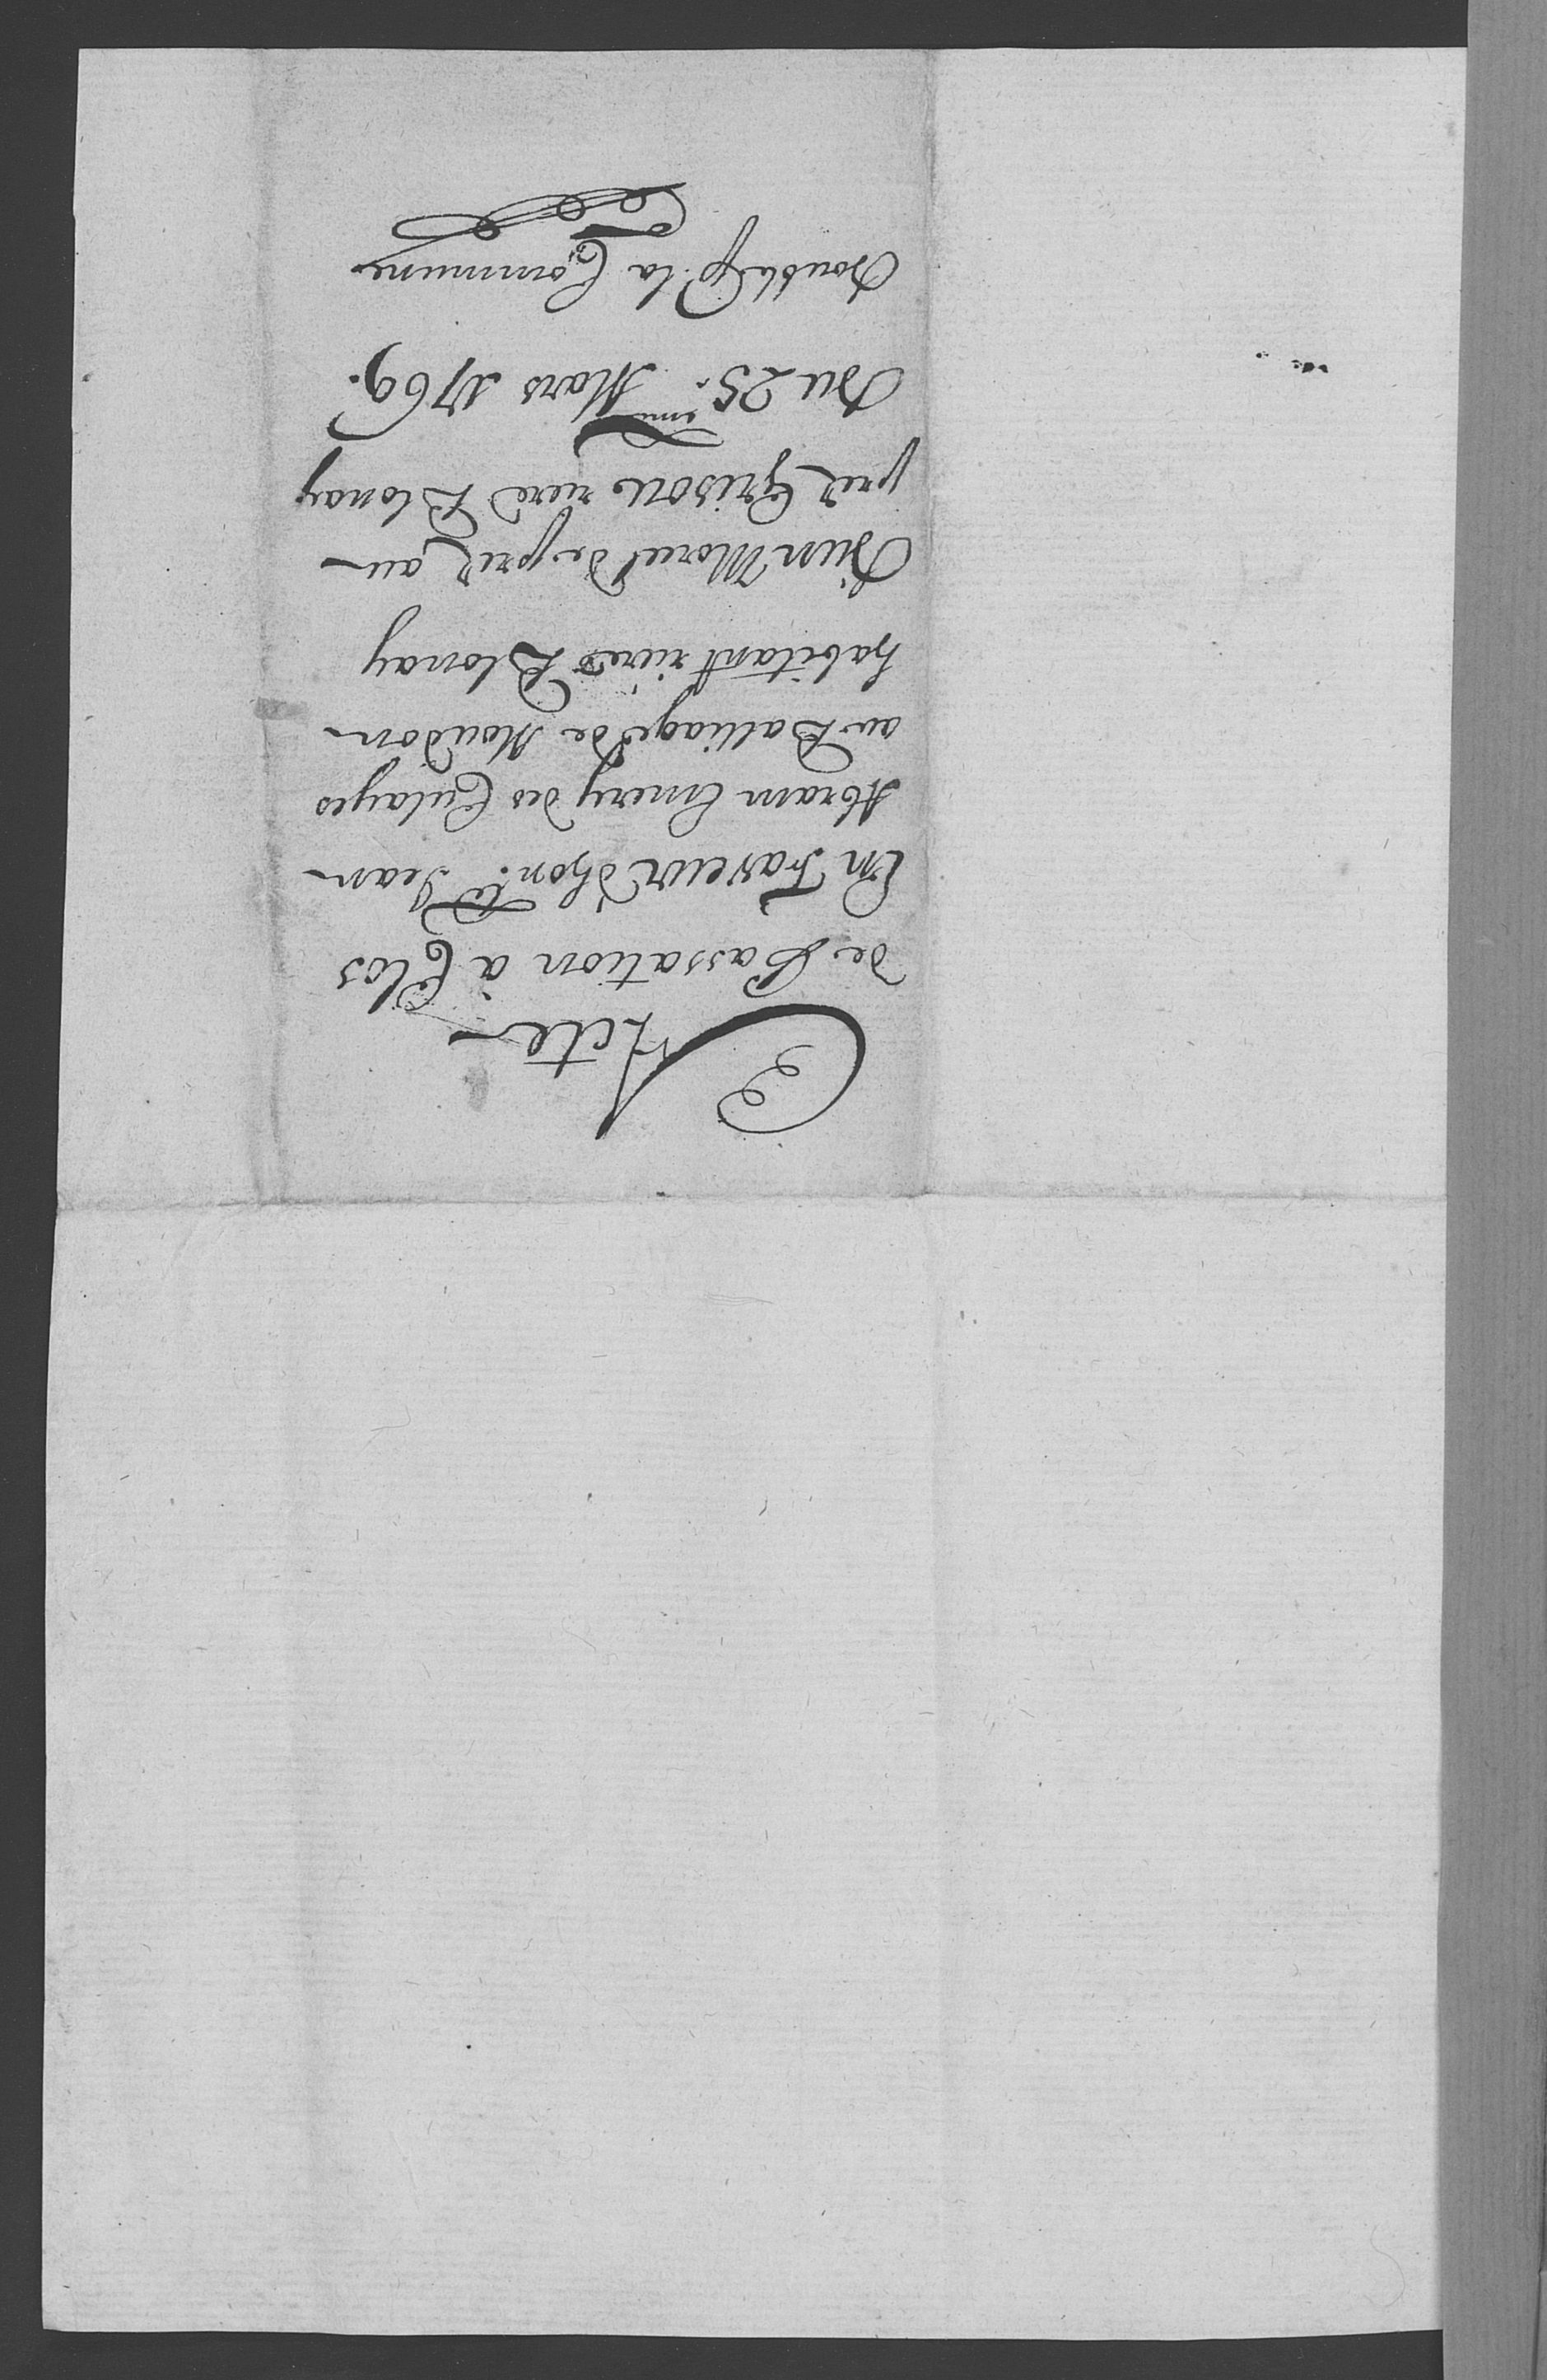 Acte
de Passation à Clos
En Faveur d'hon.te Jean
Abram Emery des Cullayes
au Balliage de Moudon
habitant riere Blonay
D'un Morcel de prez au
prez Grison riere Blonay
Du 25.eme Mars 1769.
Double p.r la Commune